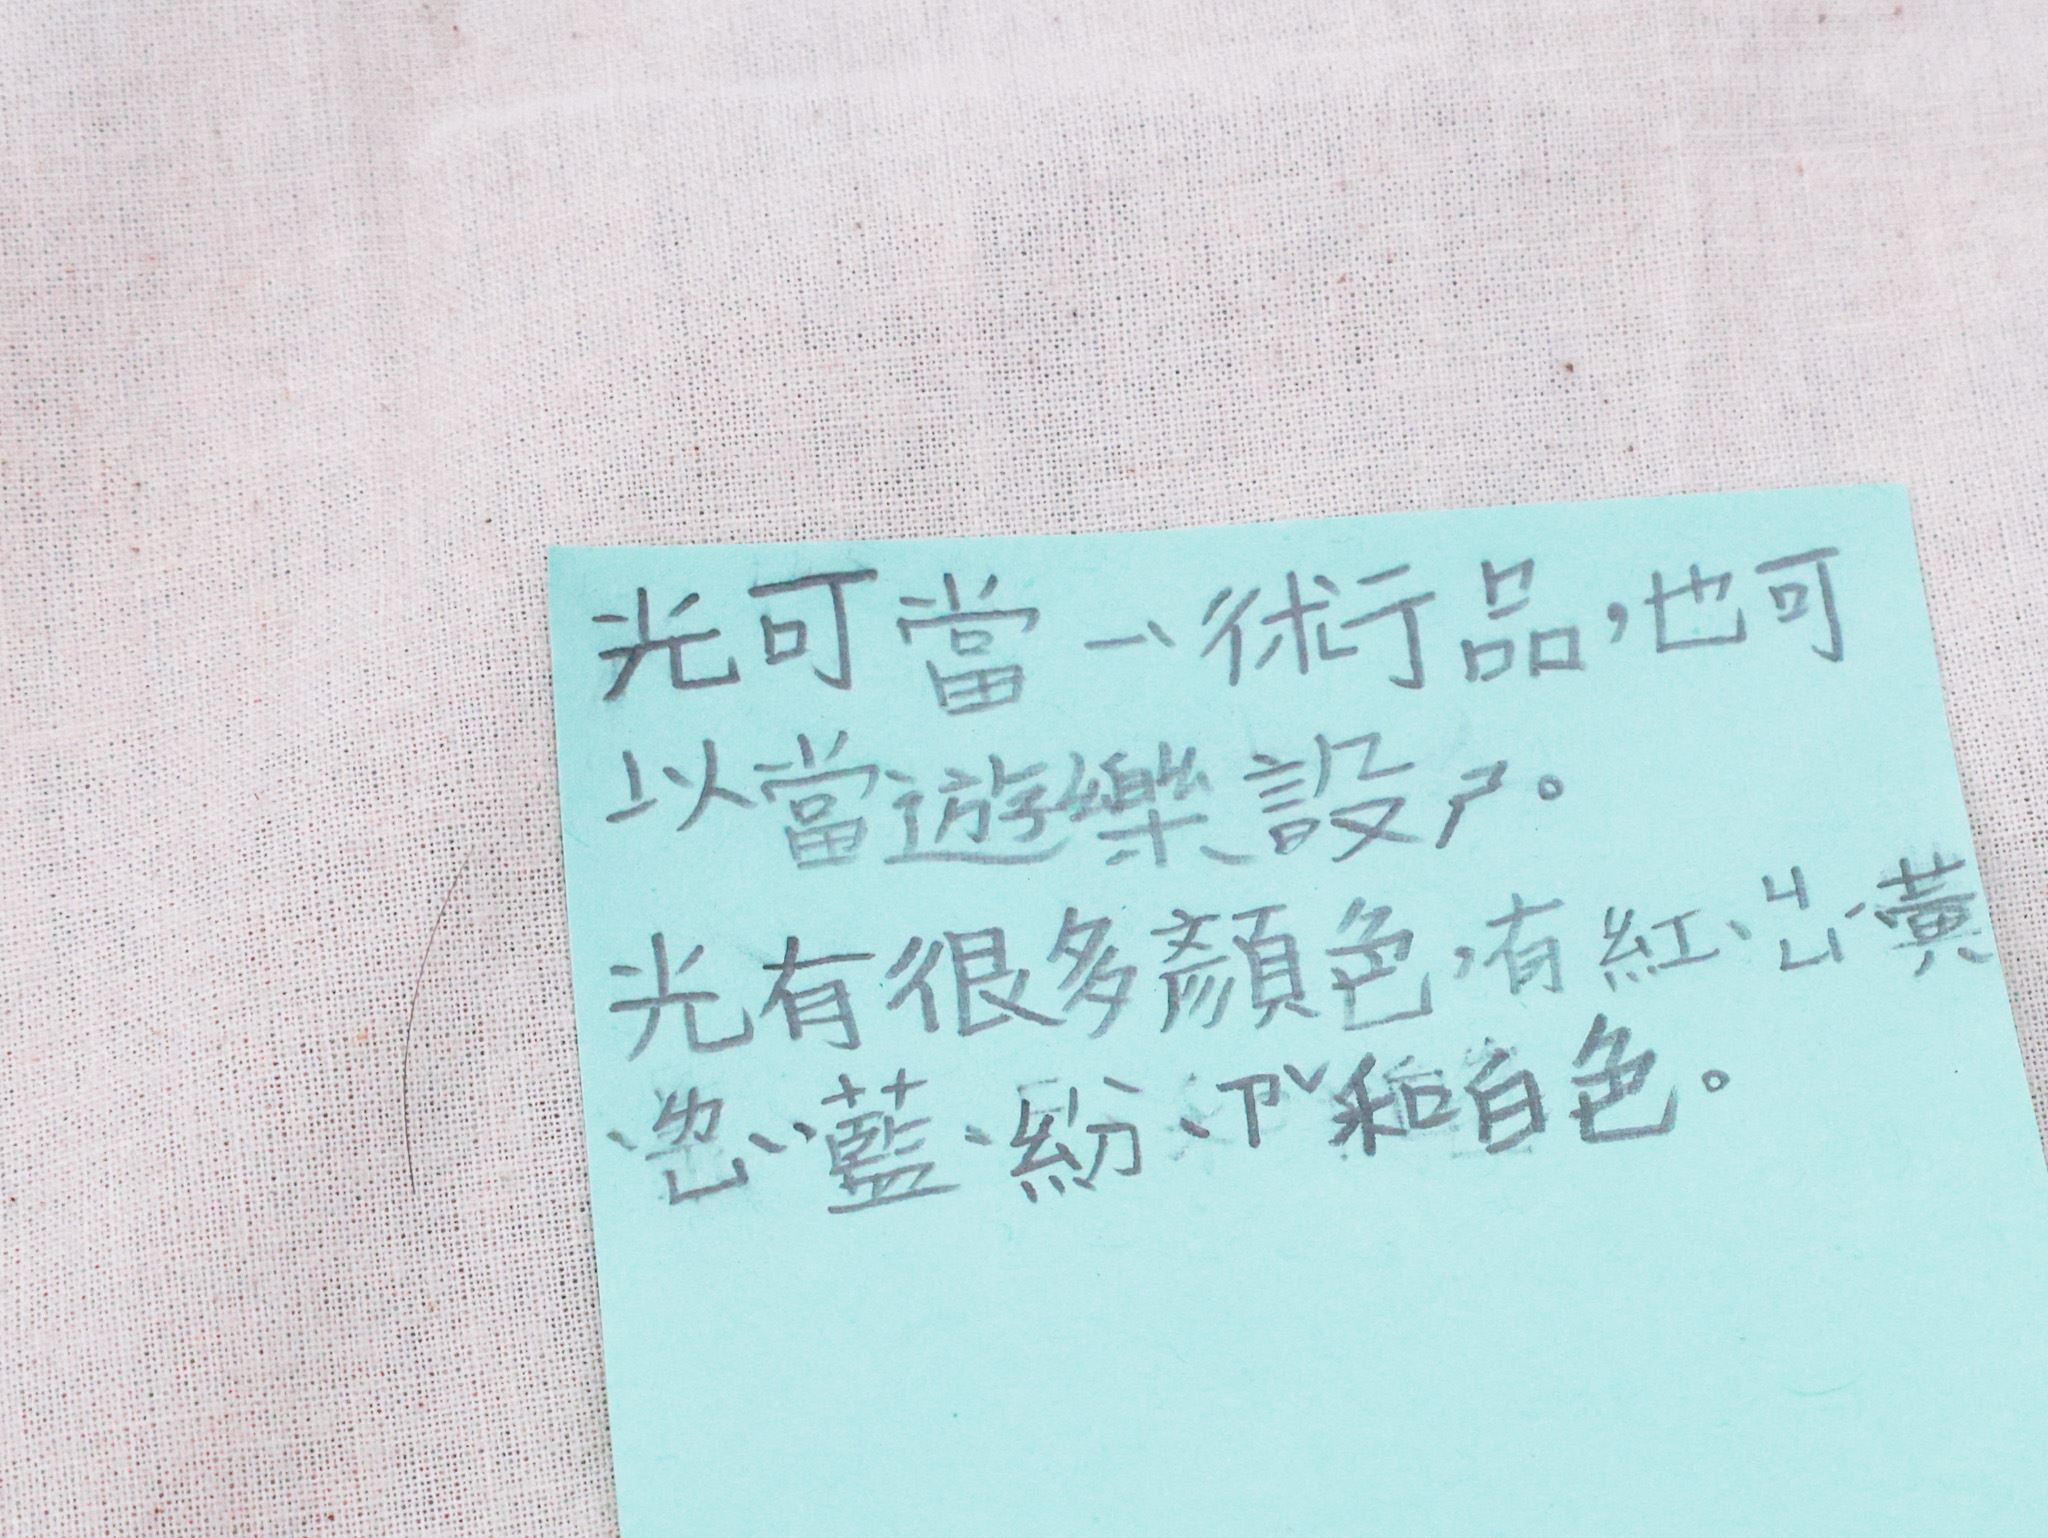 光可當ㄧˋ術品，也可
以當遊樂設ㄕ。
光有很多顏色，有紅、ㄐㄩˊ黃
、ㄌㄩˋ、藍、紛、ㄗˇ和白色。